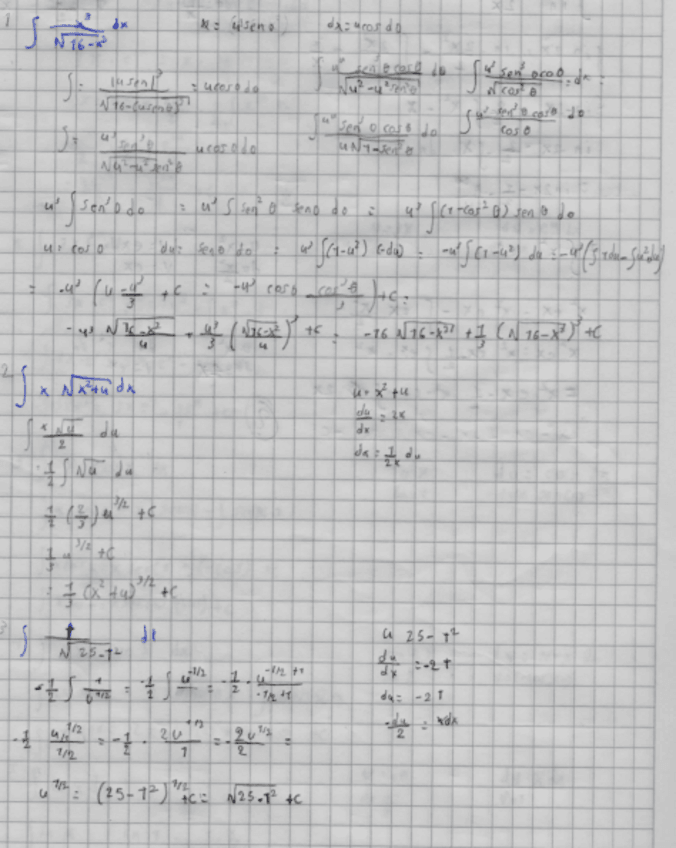 1 ∫ x³/√16-x² dx    x = 4senθ    dx = 4cosθ dθ
∫ = (4senθ)³/√16-(4senθ)² = 4cosθdθ    ∫ 4⁴ sen³θcosθ/√4²-4²sen²θ dθ    ∫ 4³ sen³θcosθ/√cos²θ = dx =
∫ = 4³ sen³θ/√4²-4²sen²θ 4cosθdθ    ∫ 4⁴ sen³θ cosθ/4√1-sen²θ dθ    ∫ 4³ sen³θ cosθ/cosθ dθ
4³ ∫ sen³θ dθ = 4³ ∫ sen²θ senθ dθ = 4³ ∫(1-cos²θ) senθ dθ
u = cosθ    du = senθ dθ = 4³ ∫(1-u²) (-du) = -4³ ∫(1-u²) du = -4³(∫1du-∫u²du)
= -4³ (u - u³/3 + c = -4³ cosθ - cos³θ/3) + c =
-4³ √16-x²/4 + 4³/3 (√16-x²/4)³ + c = -16 √16-x² + 1/3 (√16-x²)³ + c
2 ∫ x √x²+4 dx    u = x²+4
∫ x√u/2 du    du/dx = 2x
1/2 ∫ √u du    dx = 1/2x du
1/2 (2/3) u^3/2 + c
1/3 u^3/2 + c
= 1/3 (x²+4)^3/2 + c
3 ∫ t/√25-t² dt    u 25-t²
-1/2 ∫ 1/u^1/2 = -1/2 ∫ u^-1/2 = -1/2 · u^-1/2+1/-1/2+1    du/dx = -2t
du = -2t
-1/2 u^1/2/1/2 = -1/2 · 2u^1/2/1 = -2u^1/2/2 =    -du/2 = xdx
u^1/2 = (25-t²)^1/2 + c = √25-t² + c